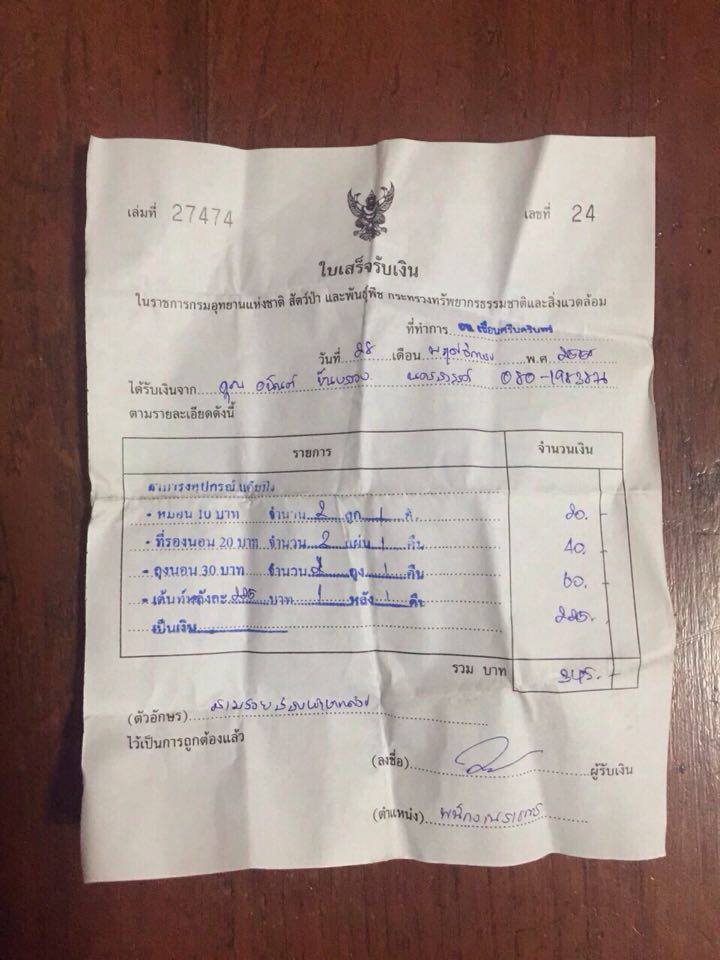 เล่มที่ 27474 เลขที่ 24
ใบเสร็จรับเงิน
ในราชการกรมอุทยานแห่งชาติ สัตว์ป่า และพันธุ์พืช กระทรวงทรัพยากรธรรมชาติและสิ่งแวดล้อม
ที่ทำการ อช.เขื่อนศรีนครินทร์
วันที่ 28 เดือน พฤศจิกายน พ.ศ.
ได้รับเงินจาก คุณ
ตามรายละเอียดดังนี้
รายการ จำนวนเงิน
- หมอน 10 บาท จำนวน 2 ลูก 1 คืน 20.-
- ที่รองนอน 20 บาท จำนวน 2 แผ่น 1 คืน 40.-
- ถุงนอน 30 บาท จำนวน 2 ถุง 1 คืน 60.-
- เต็นท์หลังละ 225 บาท 1 หลัง 1 คืน 225.-
เป็นเงิน
รวม บาท 345.-
(ตัวอักษร) สามร้อยสี่สิบห้าบาทถ้วน
ไว้เป็นการถูกต้องแล้ว
(ลงชื่อ) ผู้รับเงิน
(ตำแหน่ง) พนักงานราชการ